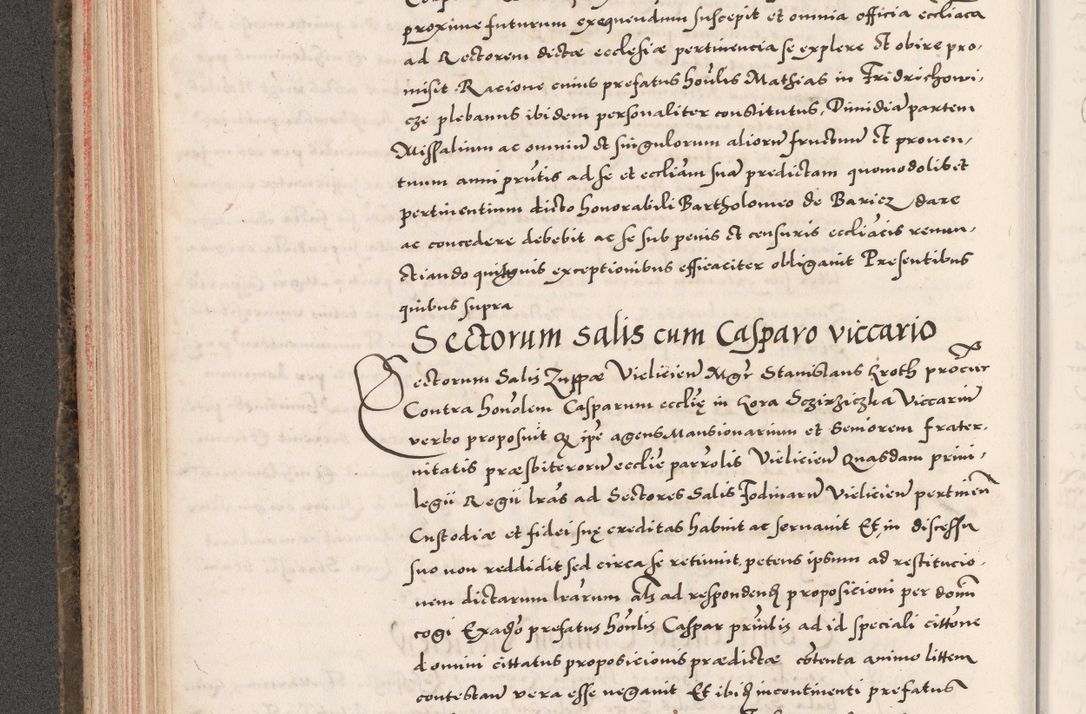 proxime futurum exequendum suscepit et omnia officia eccliaca
ad Rectorem dictæ ecclesiæ pertinencia se explere et obire pro,
misit. Racione cuius prefatus hoňlis Mathias in Fridrichowi,
cze plebanus ibidem personaliter constitutus, Dimidiã partem
Missalium ac omniũ et singulorum aliorũ fructuum et proven,
tuum anni pr̃ntis ad se et eccliam suã predictam quomodolibet
pertinentium dicto honorabili Bartholomeo de Baricz dare
ac concedere debebit ac se sub penis et censuris eccliacis renun,
ctiando quibusuis exceptionibus efficaciter obligauit Presentibus
quibus supra
Sectorum salis cum Casparo viccario
Sectorum Salis Zuppæ Vielicieñ Mgr̃ Stanislaus Kroth procur̃
Contra hon̄olem Casparum ecclię in Kora Sczirziczka Viccariũ
verbo proposuit Q ip̃e agens Mansionarium et Seniorem frater,
nitatis præsbiterorũ ecclię parr̃olis Vielicieñ Quasdam priui,
legii Regii lr̃as ad Sectores Salis Fodinarũ Vielicieñ pertineñ
Custodiæ et fidei suę creditas habuit ac seruauit Et in discessu
suo non reddidit sed circa se retinuit, petens ipsum ad restitucio,
nem dictarum lr̃arum al̃s ad respondend̃ proposicioni per domĩ
cogi Exad̃o prefatus hoňlis Caspar prũlis ad id speciali cittõne
domini cittatus proposicionis prædictæ cõtenta animo littem
contestañ vera esse negauit Et ibid̃ incontinenti prefatus